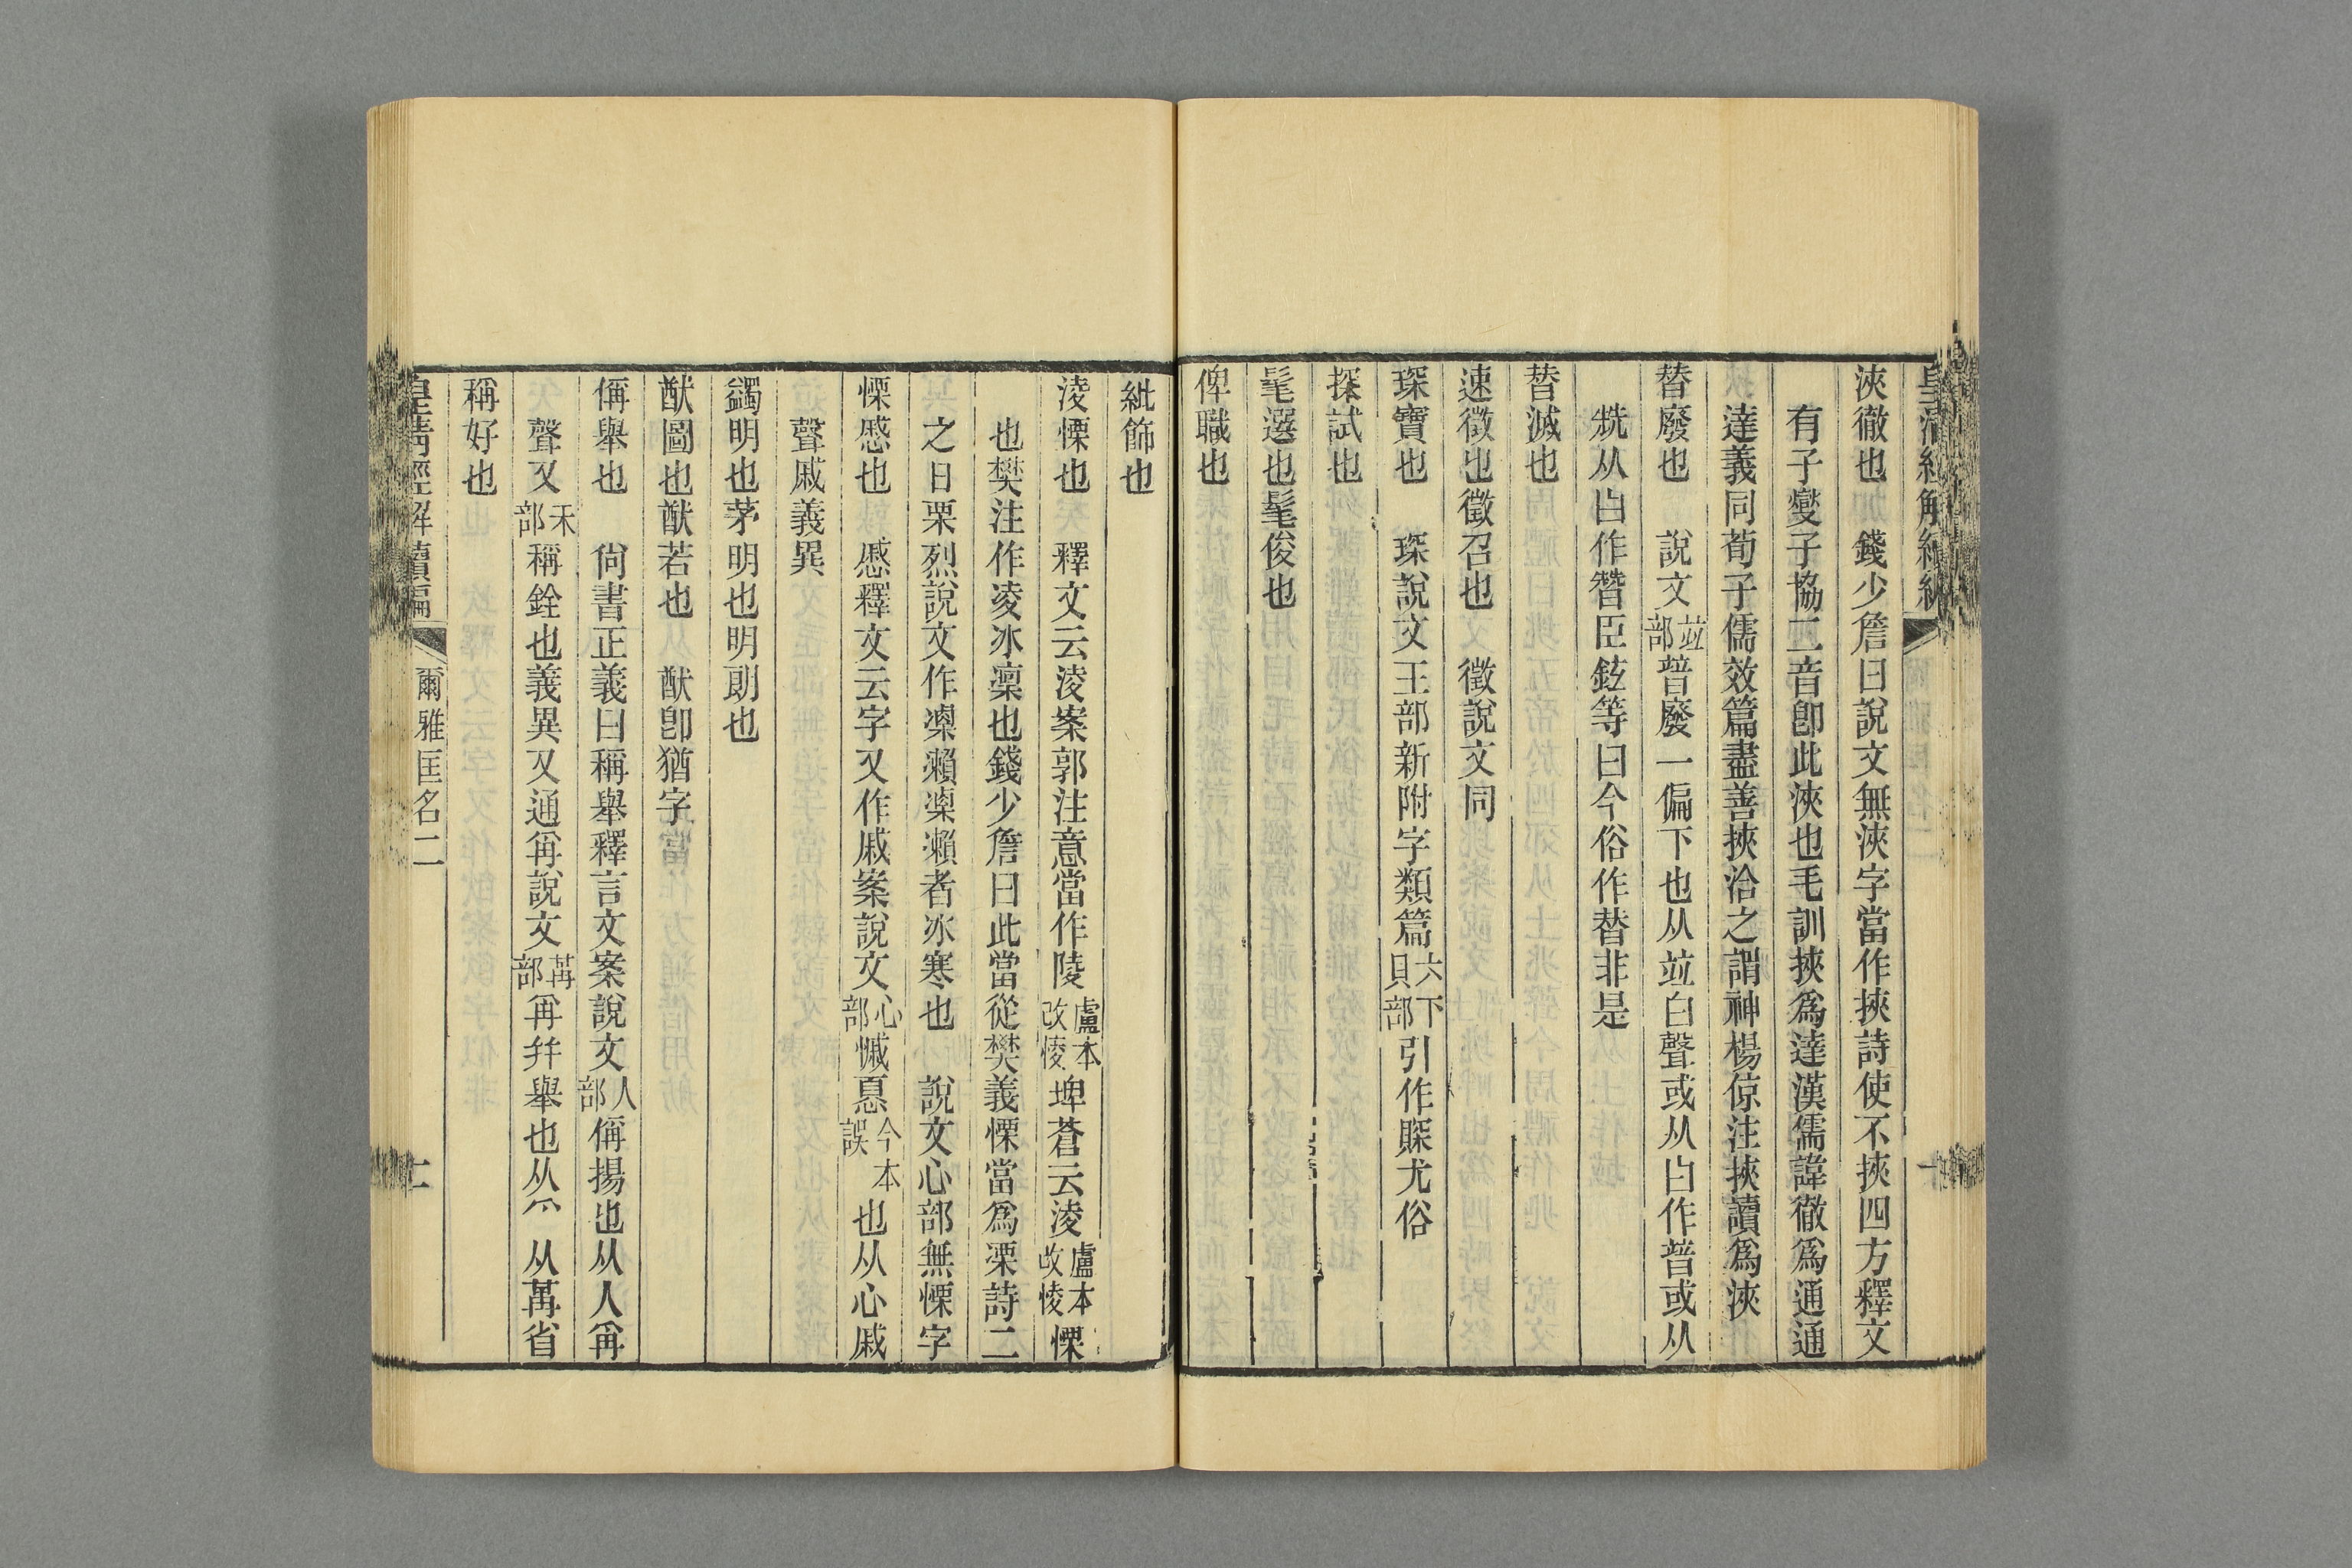 浹徹也　錢少詹曰說文無浹字當作挾詩使不挾四方釋文
有子燮子協二音卽此浹也毛訓挾爲達漢儒諱徹爲通通
達義同荀子儒效篇盡善挾洽之謂神楊倞注挾讀爲浹
替廢也　說文竝部暜廢一偏下也从竝白聲或从曰作暜或从
兟从曰作朁臣鉉等曰今俗作替非是
替滅也
速徵也徵召也　徵說文同
琛寶也　琛說文王部新附字類篇六下貝部引作賝尤俗
探試也
髦選也髦俊也
俾職也
紕飾也
淩慄也　釋文云淩案郭注意當作陵盧本改㥄埤蒼云淩盧本改㥄慄
也樊注作凌冰凜也錢少詹曰此當從樊義慄當爲凓詩二
之日栗烈說文作凓瀨凓瀨者冰寒也　說文心部無慄字
慄慼也　慼釋文云字又作戚案說文心部慽㥑今本誤也从心戚
聲戚義異
蠲明也茅明也明朗也
猷圖也猷若也　猷卽猶字
偁舉也　尙書正義曰稱舉釋言文案說文人部偁揚也从人爯
聲又禾部稱銓也義異又通爯說文冓部爯幷舉也从爫从冓省
稱好也
皇淸經解續編　爾雅匡名二